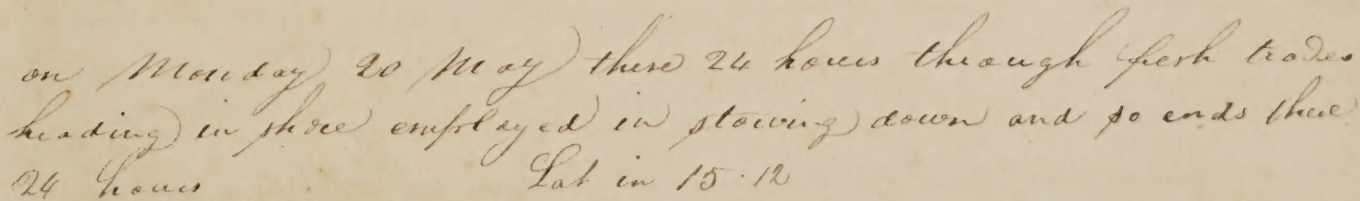 on Monday 20 May these 24 hours through fresh trades
heading in shore employed in stowing down and so ends these
24 hours Lat in 15.12